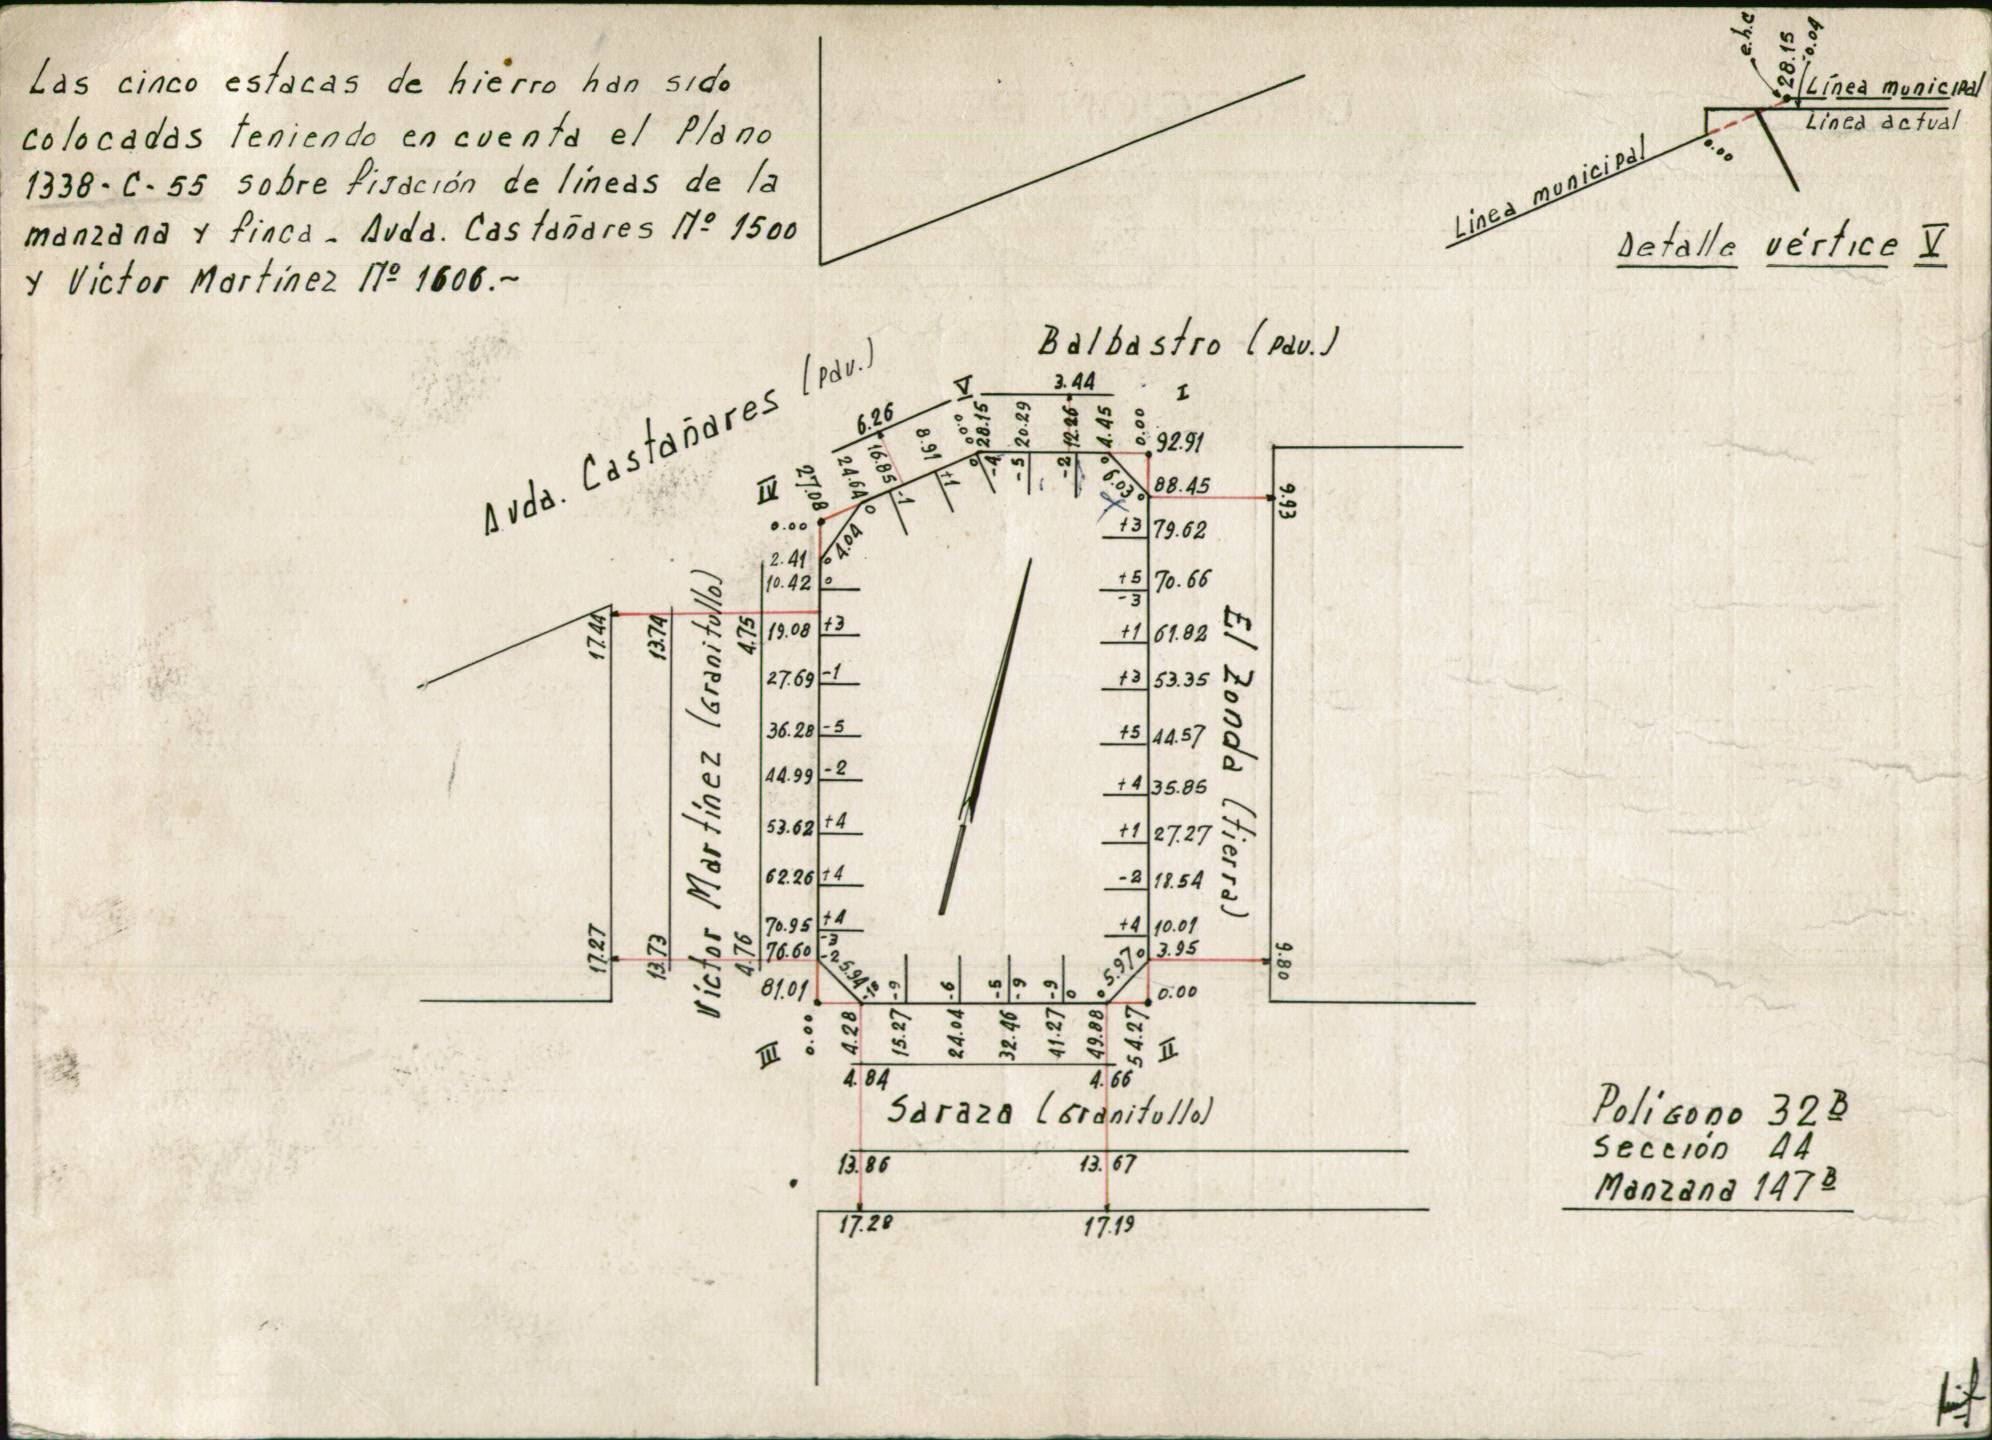 Las cinco estacas de hierro han sido
colocadas teniendo en cuenta el Plano
1338-C-55 sobre fijación de líneas de la
manzana y finca - Avda. Castañares Nº 1500
y Víctor Martínez Nº 1606.~
e.h.c
28.15
-0.04
Línea municipal
Línea actual
0.00
Línea municipal
Detalle vértice V
Balbastro (pav.)
Avda. Castañares (pav.)
V
3.44
I
6.26
0.00
28.15
20.29
12.26
4.45
0.00
92.91
8.91
16.85
24.64
27.08
IV
0
-4
-5
-2
0
+1
-1
0
6.03
0
88.45
9.93
0.00
2.41
0
4.04
10.42
0
+3
79.62
+5
-3
70.66
17.44
13.74
4.75
19.08
+3
+1
61.82
27.69
-1
+3
53.35
36.28
-5
+5
44.57
44.99
-2
+4
35.85
53.62
+4
+1
27.27
62.26
+4
-2
18.54
70.95
+4
+4
10.01
Víctor Martínez (Granitullo)
El Zonda (tierra)
17.27
13.73
4.76
76.60
-3
-2
5.94
-10
-9
-6
-5
-9
-9
0
0
5.97
0
3.95
9.80
81.01
0.00
0.00
4.28
15.27
24.04
32.46
41.27
49.88
54.27
III
II
4.84
4.66
Saraza (Granitullo)
13.86
13.67
17.28
17.19
Polígono 32B
Sección 44
Manzana 147B